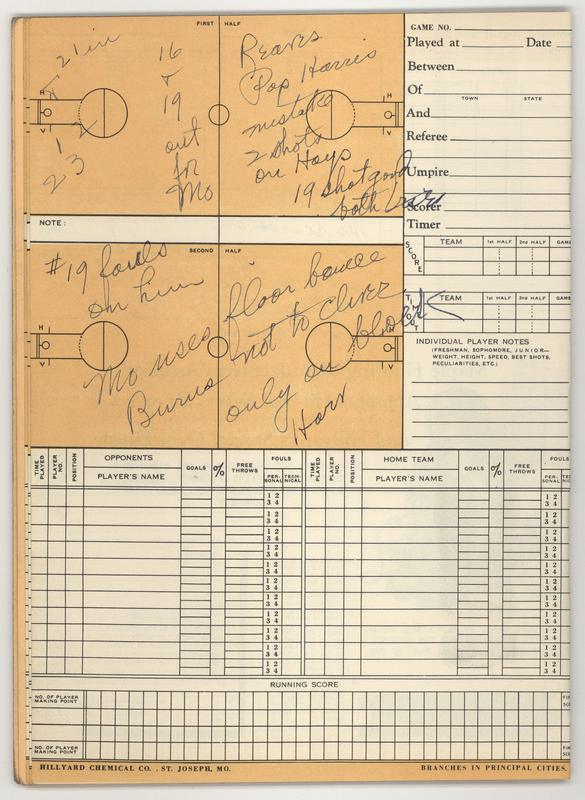 FIRST HALF
21 in
H
V
1 2
23
16
+
19
out
for
Mo
Reaves
Pop Harris
mistake
2 shots
on Hays
19 shot good
both
H
V
NOTE:
SECOND HALF
#19 fouls
on him
Mo uses floor bounce
Burns not to
only on block
Horr
H
V
H
V
GAME NO.
Played at Date
Between
Of
TOWN STATE
And
Referee
Umpire
Scorer
Timer
SCORE TEAM 1st HALF 2nd HALF GAME
TIME OUT TEAM 1st HALF 2nd HALF GAME
INDIVIDUAL PLAYER NOTES
(FRESHMAN, SOPHOMORE, JUNIOR—
WEIGHT, HEIGHT, SPEED, BEST SHOTS,
PECULIARITIES, ETC.)
TIME PLAYED PLAYER NO. POSITION OPPONENTS PLAYER'S NAME GOALS % FREE THROWS FOULS PERSONAL TECHNICAL
TIME PLAYED PLAYER NO. POSITION HOME TEAM PLAYER'S NAME GOALS % FREE THROWS FOULS PERSONAL
1 2 1 2
3 4 3 4
1 2 1 2
3 4 3 4
1 2 1 2
3 4 3 4
1 2 1 2
3 4 3 4
1 2 1 2
3 4 3 4
1 2 1 2
3 4 3 4
1 2 1 2
3 4 3 4
1 2 1 2
3 4 3 4
1 2 1 2
3 4 3 4
1 2 1 2
3 4 3 4
1 2 1 2
3 4 3 4
RUNNING SCORE
NO. OF PLAYER
MAKING POINT
NO. OF PLAYER
MAKING POINT
HILLYARD CHEMICAL CO. . ST. JOSEPH, MO. BRANCHES IN PRINCIPAL CITIES.